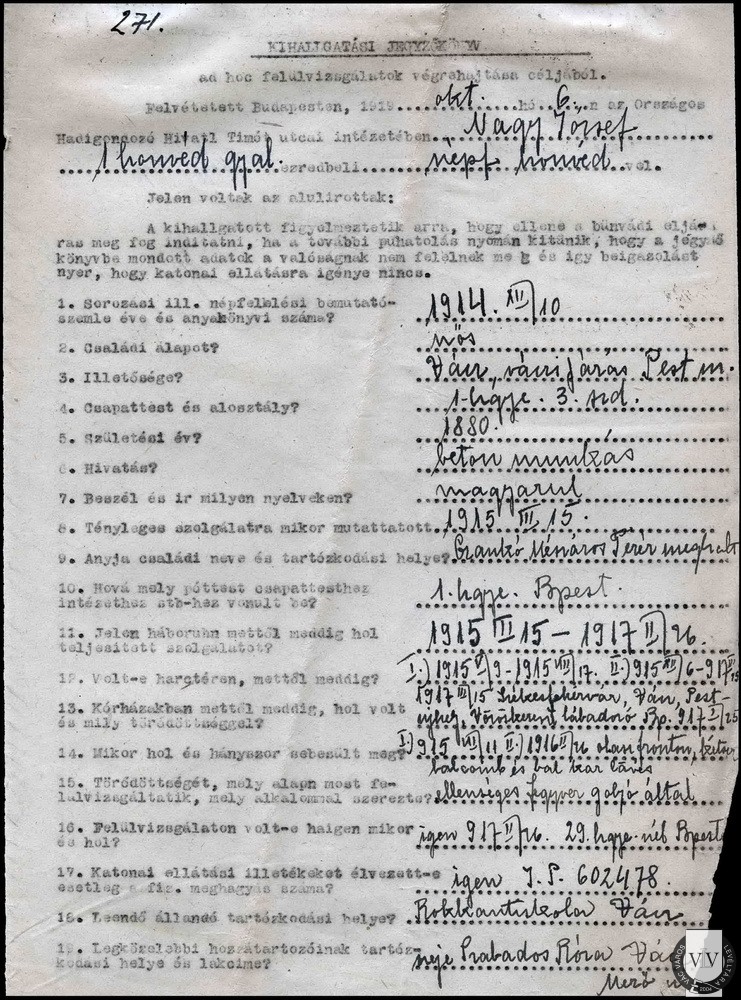 271.
KIHALLGATÁSI JEGYZŐKÖNYV
ad hoc felülvizsgálatok végrehajtása céljából.
Felvétetett Budapesten, 1919. okt. hó 6. n az Országos
Hadigondozó Hivatl Timót utcai intézetében Nagy József
1 honvéd gyal. ezredbeli népf honvéd vel.
Jelen voltak az alulirottak:
A kihallgatott figyelmeztetik arra, hogy ellene a bünvádi eljá-
rás meg fog indítatni, ha a további puhatolás nyomán kitünik, hogy a jegyző
könyvbe mondott adatok a valóságnak nem felelnek meg és igy beigazolást
nyer, hogy katonai ellátásra igénye nincs.
1. Sorozási ill. népfelelési bemutató-
szemle éve és anyakönyvi száma? 1914. XII/10
2. Családi álapot? nős
3. Illetősége? Vác, váci járás Pest m.
4. Csapattest és alosztály? 1. hgye. 3. szd.
5. Születési év? 1880.
6. Hivatás? beton munkás
7. Beszél és ir milyen nyelveken? magyarul
8. Tényleges szolgálatra mikor mutattatott 1915. III. 15.
9. Anyja családi neve és tartózkodási helye? Mészáros Teréz meghalt
10. Hová mely póttest csapattesthez
intézethez stb-hez vonult be? 1. hgye. Bpest.
11. Jelen háboruhn mettől meddig hol
teljesitett szolgálatot? 1915 III 15 – 1917 II/26.
12. Volt-e harctéren, mettől meddig? I.) 1915 V/9-1915 VII/17. II.) 915 /6-917
13. Kórházakban mettől meddig, hol volt 1917 III/15 Székesfehérvár, Vác, Pest-
és mily törődöttséggel? lábadozó Bp. 917 /25
14. Mikor hol és hányszor sebesült meg? I.) 915 VII/11 II.) 1916 /26 olasz fronton,
balcomb és bal kar
15. Törődöttségét, mely alapn most fe-
lülvizsgáltatik, mely alkalommal szerezte? ellenséges fegyver golyó által
16. Felülvizsgálaton volt-e haigen mikor
és hol? igen 917 II/26. 29. hgye. nél Bpest
17. Katonai ellátási illetékeket élvezett-e
esetleg a fiz. meghagyás száma? igen J.P. 602478.
18. Leendő állandó tartózkodási helye? Rokkantiskola Vác
19. Legközelebbi hozzátartozóinak tartóz-
kodási helye és lakcime? neje Szabados Róza Vác
Mező u
VÁC VÁROS LEVÉLTÁRA
VV
2004